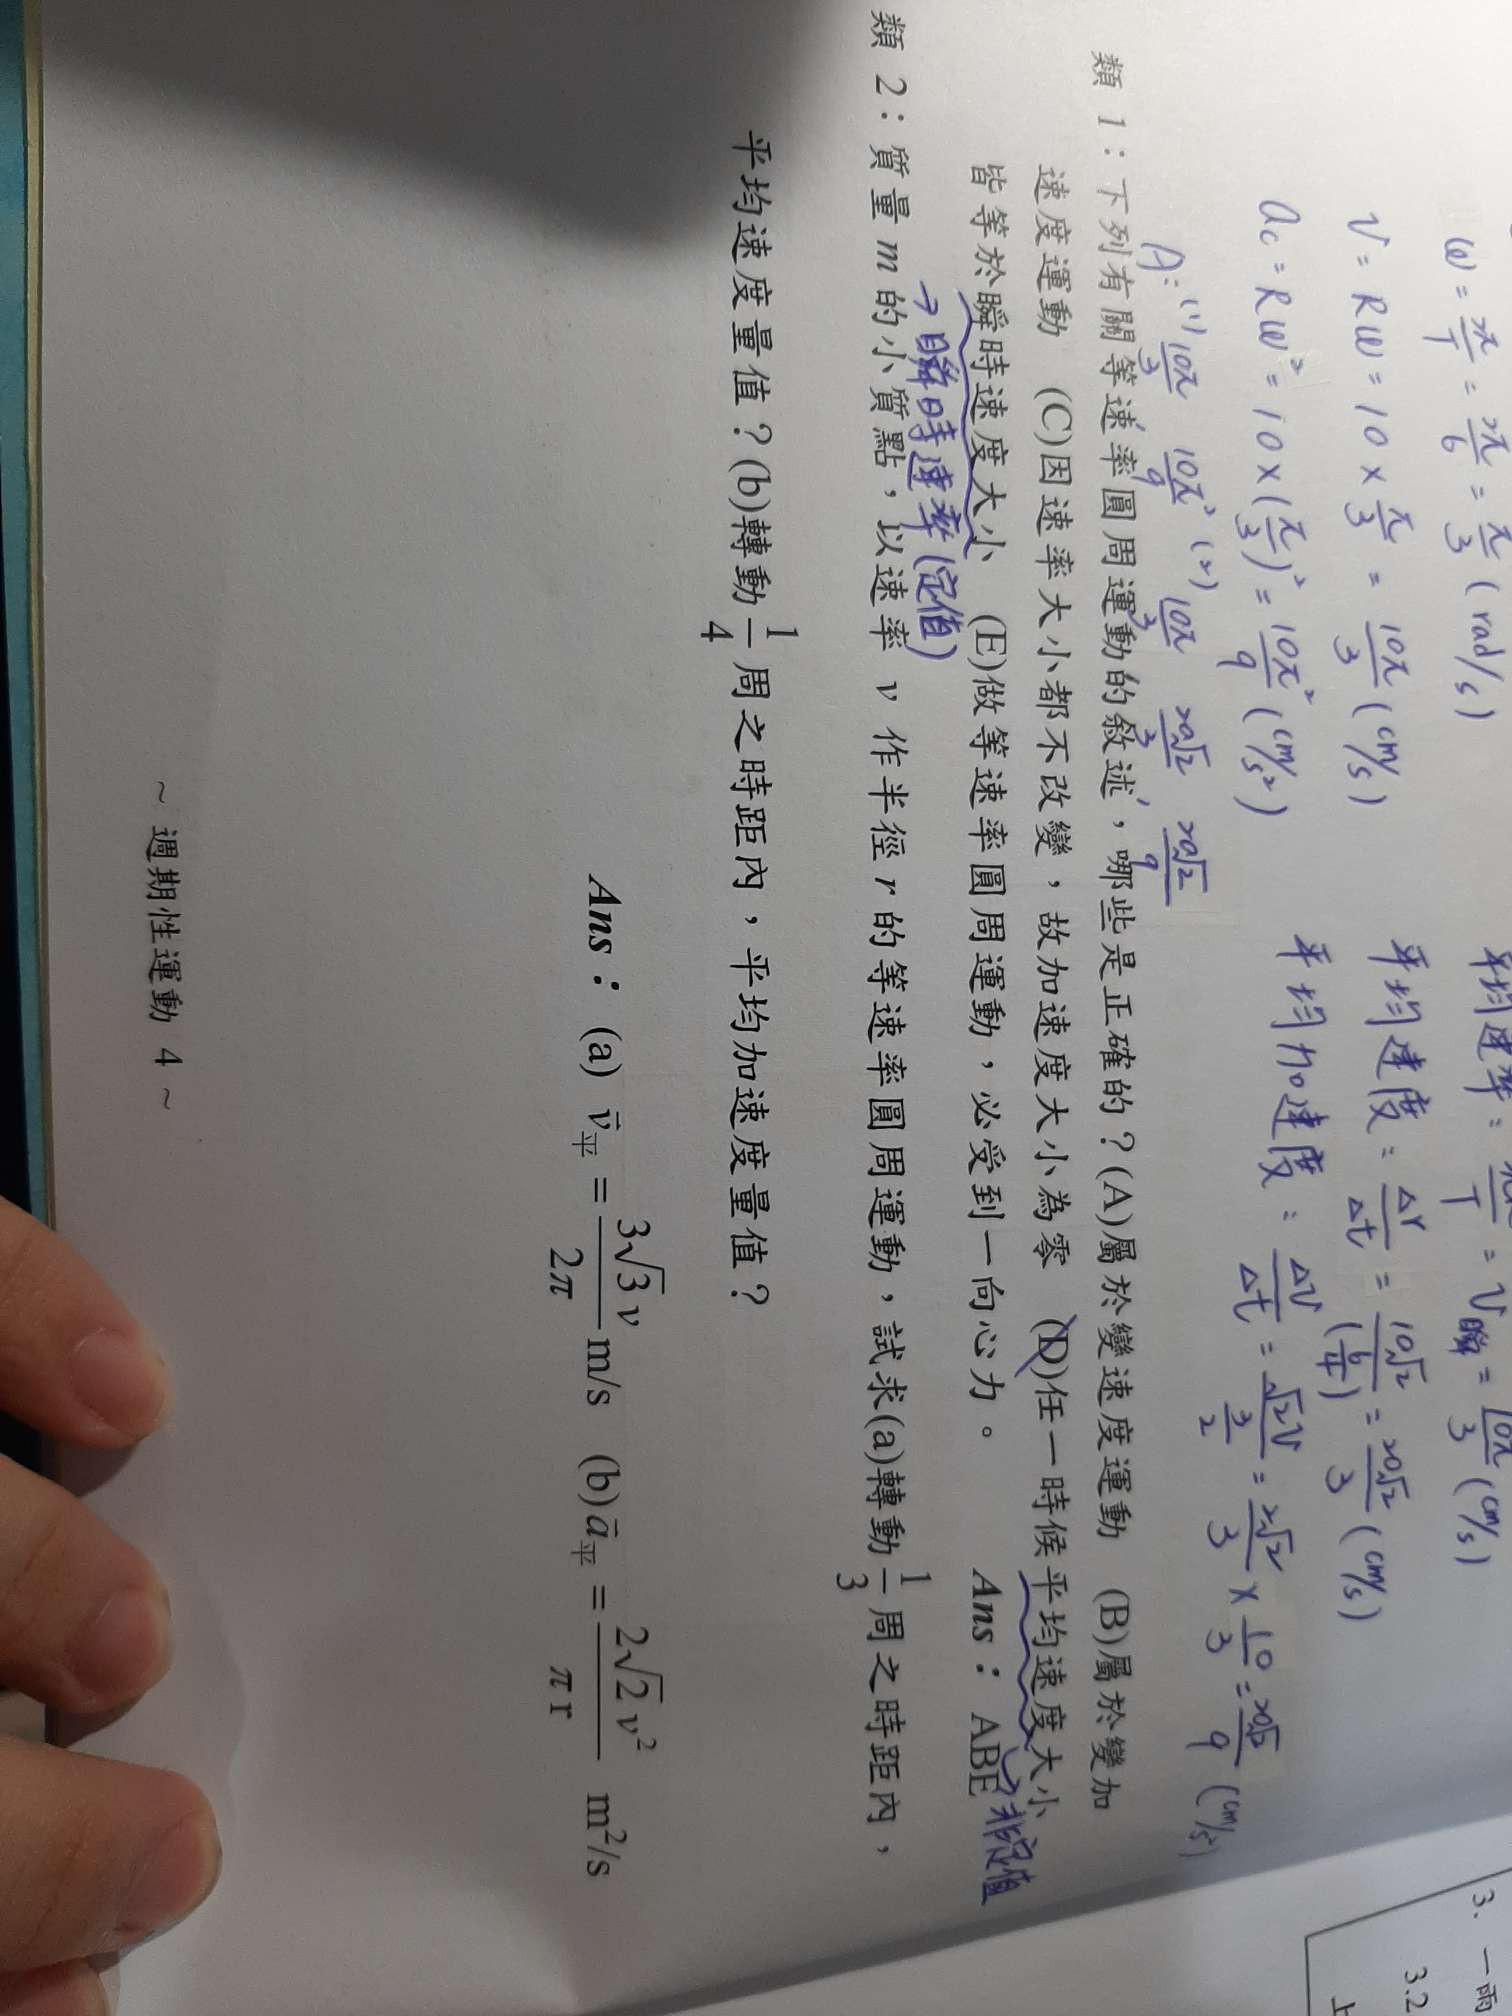 ω = 2π/T = 2π/6 = π/3 (rad/s)
v = Rω = 10 × π/3 = 10π/3 (cm/s)
ac = Rω² = 10 × (π/3)² = 10π²/9 (cm/s²)
= v瞬 = 10π/3 (cm/s)
平均速度 : Δr/Δt = 10√2/(6/4) = 20√2/3 (cm/s)
平均加速度 : Δv/Δt = √2v/(3/2) = 2√2/3 × 10/3 = 20√2/9 (cm/s²)
A : (1) 10π/3 , 10π²/9 (2) 10π/3 , 20√2/3 , 20√2/9
類 1：下列有關等速率圓周運動的敘述，哪些是正確的？(A)屬於變速度運動 (B)屬於變加
速度運動 (C)因速率大小都不改變，故加速度大小為零 (D)任一時候平均速度大小
→非定值
皆等於瞬時速度大小 (E)做等速率圓周運動，必受到一向心力。 Ans：ABE
→瞬時速率(定值)
類 2：質量 m 的小質點，以速率 v 作半徑 r 的等速率圓周運動，試求(a)轉動 1/3 周之時距內，
平均速度量值？(b)轉動 1/4 周之時距內，平均加速度量值？
Ans：(a) v̄平 = 3√3 v/2π m/s (b) ā平 = 2√2 v²/π r m²/s
~ 週期性運動 4 ~
3. 一雨
3.2